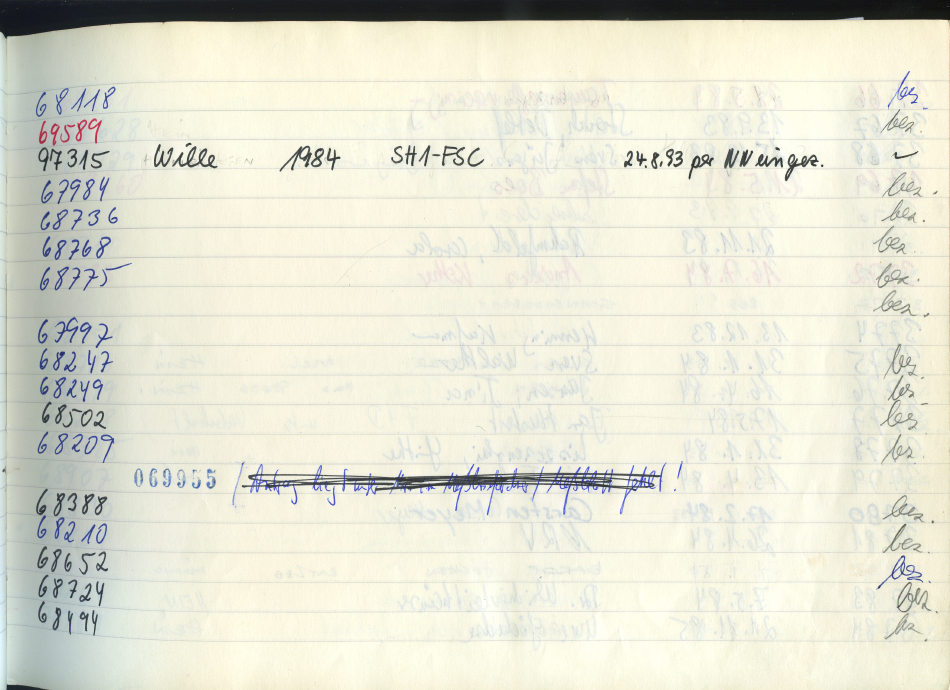 68118 bez.
69589 bez.
97315 Wille 1984 SH1-FSC 24.8.93 per NN eingez. ✓
67984 bez.
68736 bez.
68768 bez.
68775 bez.
bez.
67997
68247 bez.
68249 bez.
68502 bez
68209 bz.
069955 / !
68388 bez.
68210 bez.
68652 bez.
68724 bez.
68494 bz.